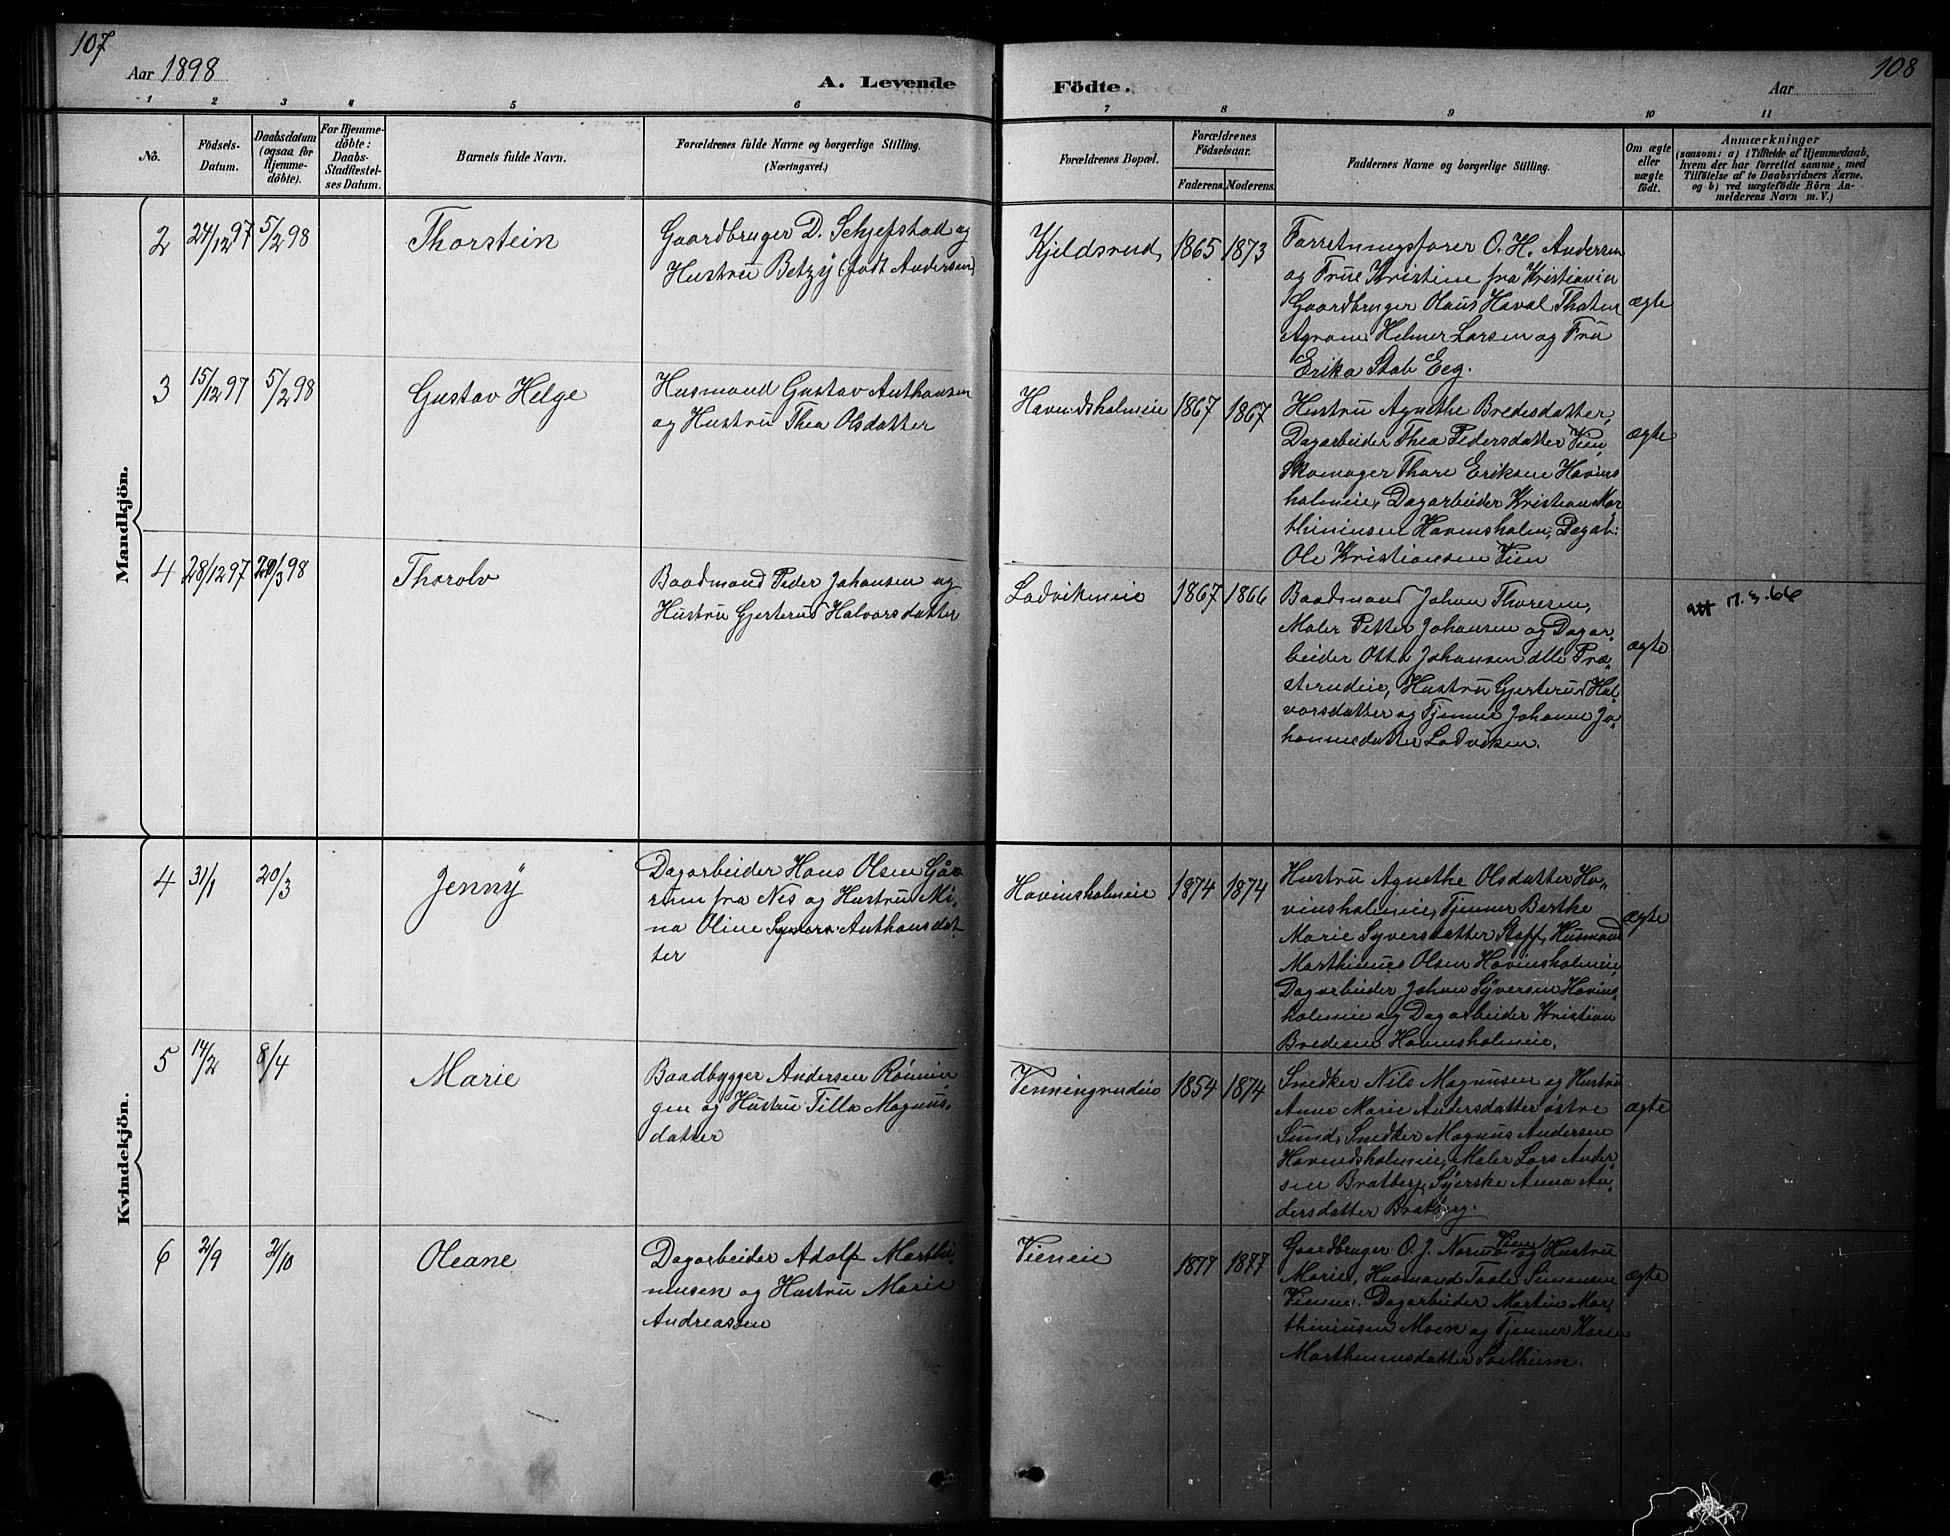 107
108
Aar 1898
A. Levende
Födte.
Aar
1 2 3 4 5 6 7 8 9 10 11
No.
Födsels-
Datum.
Daabsdatum
(ogsaa for
Hjemme-
döbte).
For Hjemme-
döbte:
Daabs-
Stadfæstel-
ses Datum.
Barnets fulde Navn.
Forældrenes fulde Navne og borgerlige Stilling.
(Næringsvei.)
Forældrenes Bopæl.
Forældrenes
Födselsaar.
Faderens. Moderens.
Faddernes Navne og borgerlige Stilling.
Om ægte
eller
uægte
födt.
Anmærkninger
(saasom: a) i Tilfælde af Hjemmedaab,
hvem der har forrettet samme, med
Tilföielse af to Daabsvidners Navne,
og b) ved uægtefödte Börn An-
melderens Navn m. V.)
Mandkjön.
2
24/12 97
5/2 98
Thorstein
Gaardbruger D. Schjefstad og
Hustru Betzÿ (født Andersen)
Kjeldsrud
1865
1873
Forretningsfører O. H. Andersen
og Frue Kristine fra Kristiania
Gaardbruger Olaus Haval Thoten
Agronom Helmer Larsen og Fru
Erika Stab Eeg.
ægte
3
15/12 97
5/2 98
Gustav Helge
Husmand Gustav Anthonsen
og Hustru Thea Olsdatter
Havindsholmeie
1867
1867
Hustru Agnethe Bredesdatter,
Dagarbeider Thea Pedersdatter Vien
Skomager Thore Eriksen Havins
holmeie, Dagarbeider Kristian Mar
thininsen Havinsholm, Dagab:
Ole Kristiansen Vien
ægte
4
28/12 97
20/3 98
Thorolv
Baadmand Peder Johansen og
Hustru Gjerterud Halvorsdatter
Ladvikmeie
1867
1866
Baadmand Johan Thoresen,
Maler Petter Johansen og Dagar-
beider Otto Johansen alle Præ-
sterudeie, Hustru Gjerterud Hal-
vorsdatter og Tjener Johanne Jo-
hannesdatter Ladviken.
ægte
att 17.3.66
Kvindekjön.
4
31/1
20/3
Jennÿ
Dagarbeider Hans Olsen Gaa-
rum fra Nes og Hustru Mi-
na Oline Anthonsdat-
ter
Havinsholmeie
1874
1874
Hustru Agnethe Olsdatter Ha-
vinsholmeie, Tjener Berthe
Marie Syversdatter Staff, Husmand
Marthinus Olsen Havinsholmeie
Dagarbeider Johan Sÿversen Havins-
holmeie og Dagarbeider Kristian
Bredesen Havinsholmeie.
ægte
5
14/2
8/4
Marie
Baadbygger Andersen Rønnin
gen og Hustru Tilla Magnus-
datter
Venningrudeie
1854
1874
Snedker Nils Magnusen og Hustru
Anne Marie Andersdatter østre
Sund, Snedker Magnus Andersen
Havindsholmeie, Maler Lars Ander-
sen Bratberg, Sÿerske Anna An-
dersdatter Bratberg.
ægte
6
2/9
2/10
Oleane
Dagarbeider Adolf Marthi-
niusen og Hustru Marie
Andreassen
Vieneie
1877
1877
Gaardbruger O. J. Narmo Vien og Hustru
Marie, Husmand Simonsen
Dagarbeider Martin Mar-
thiniusen Moen og Tjener Karen
Marthinusdatter Solheim.
ægte